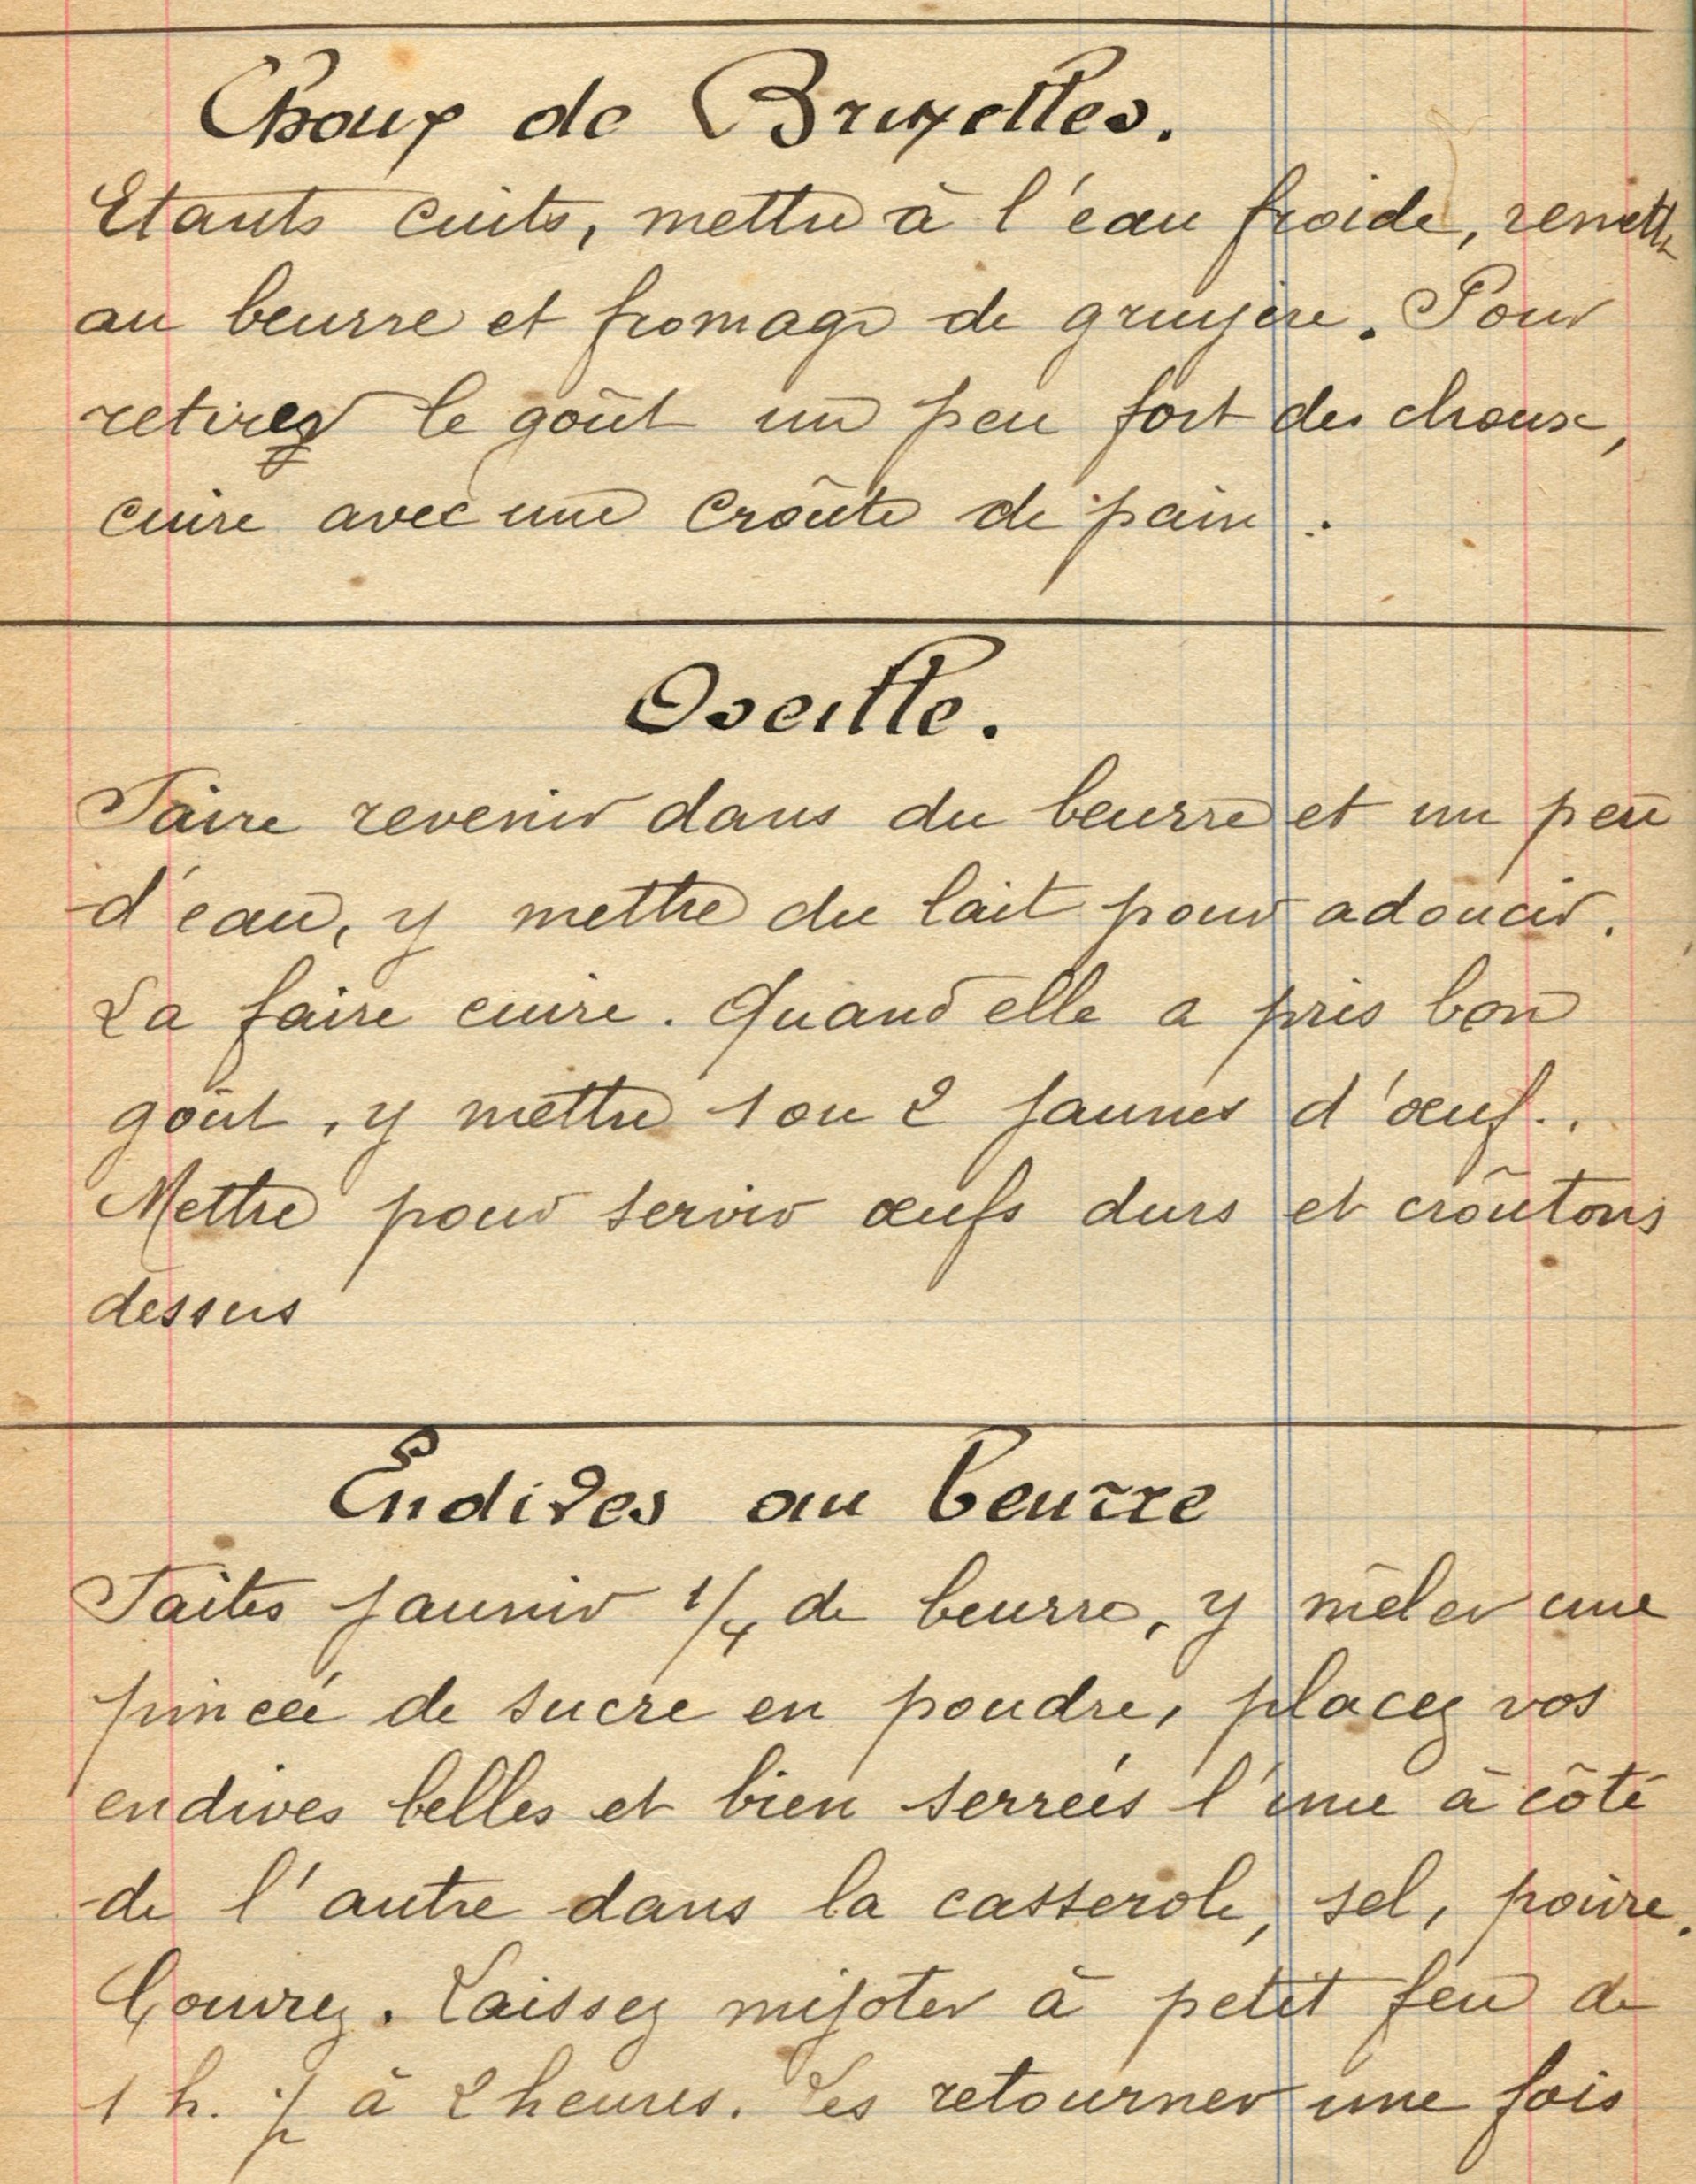 Choux de Bruxelles.
Etants cuits, mettre à l'eau froide, remettre
au beurre et fromage de gruyère. Pour
retirez le goût un peu fort des choux,
cuire avec une croûte de pain.
Oseille.
Faire revenir dans du beurre et un peu
d'eau, y mettre du lait pour adoucir.
La faire cuire. Quand elle a pris bon
goût, y mettre 1 ou 2 jaunes d'œuf..
Mettre pour servir œufs durs et croûtons
dessus
Endives au beurre
Faites jaunir 1/4 de beurre, y mêler une
pincée de sucre en poudre, placez vos
endives belles et bien serrées l'une à côté
de l'autre dans la casserole, sel, poivre.
Couvrez. Laissez mijoter à petit feu de
1 h. ½ à 2 heures. Les retourner une fois